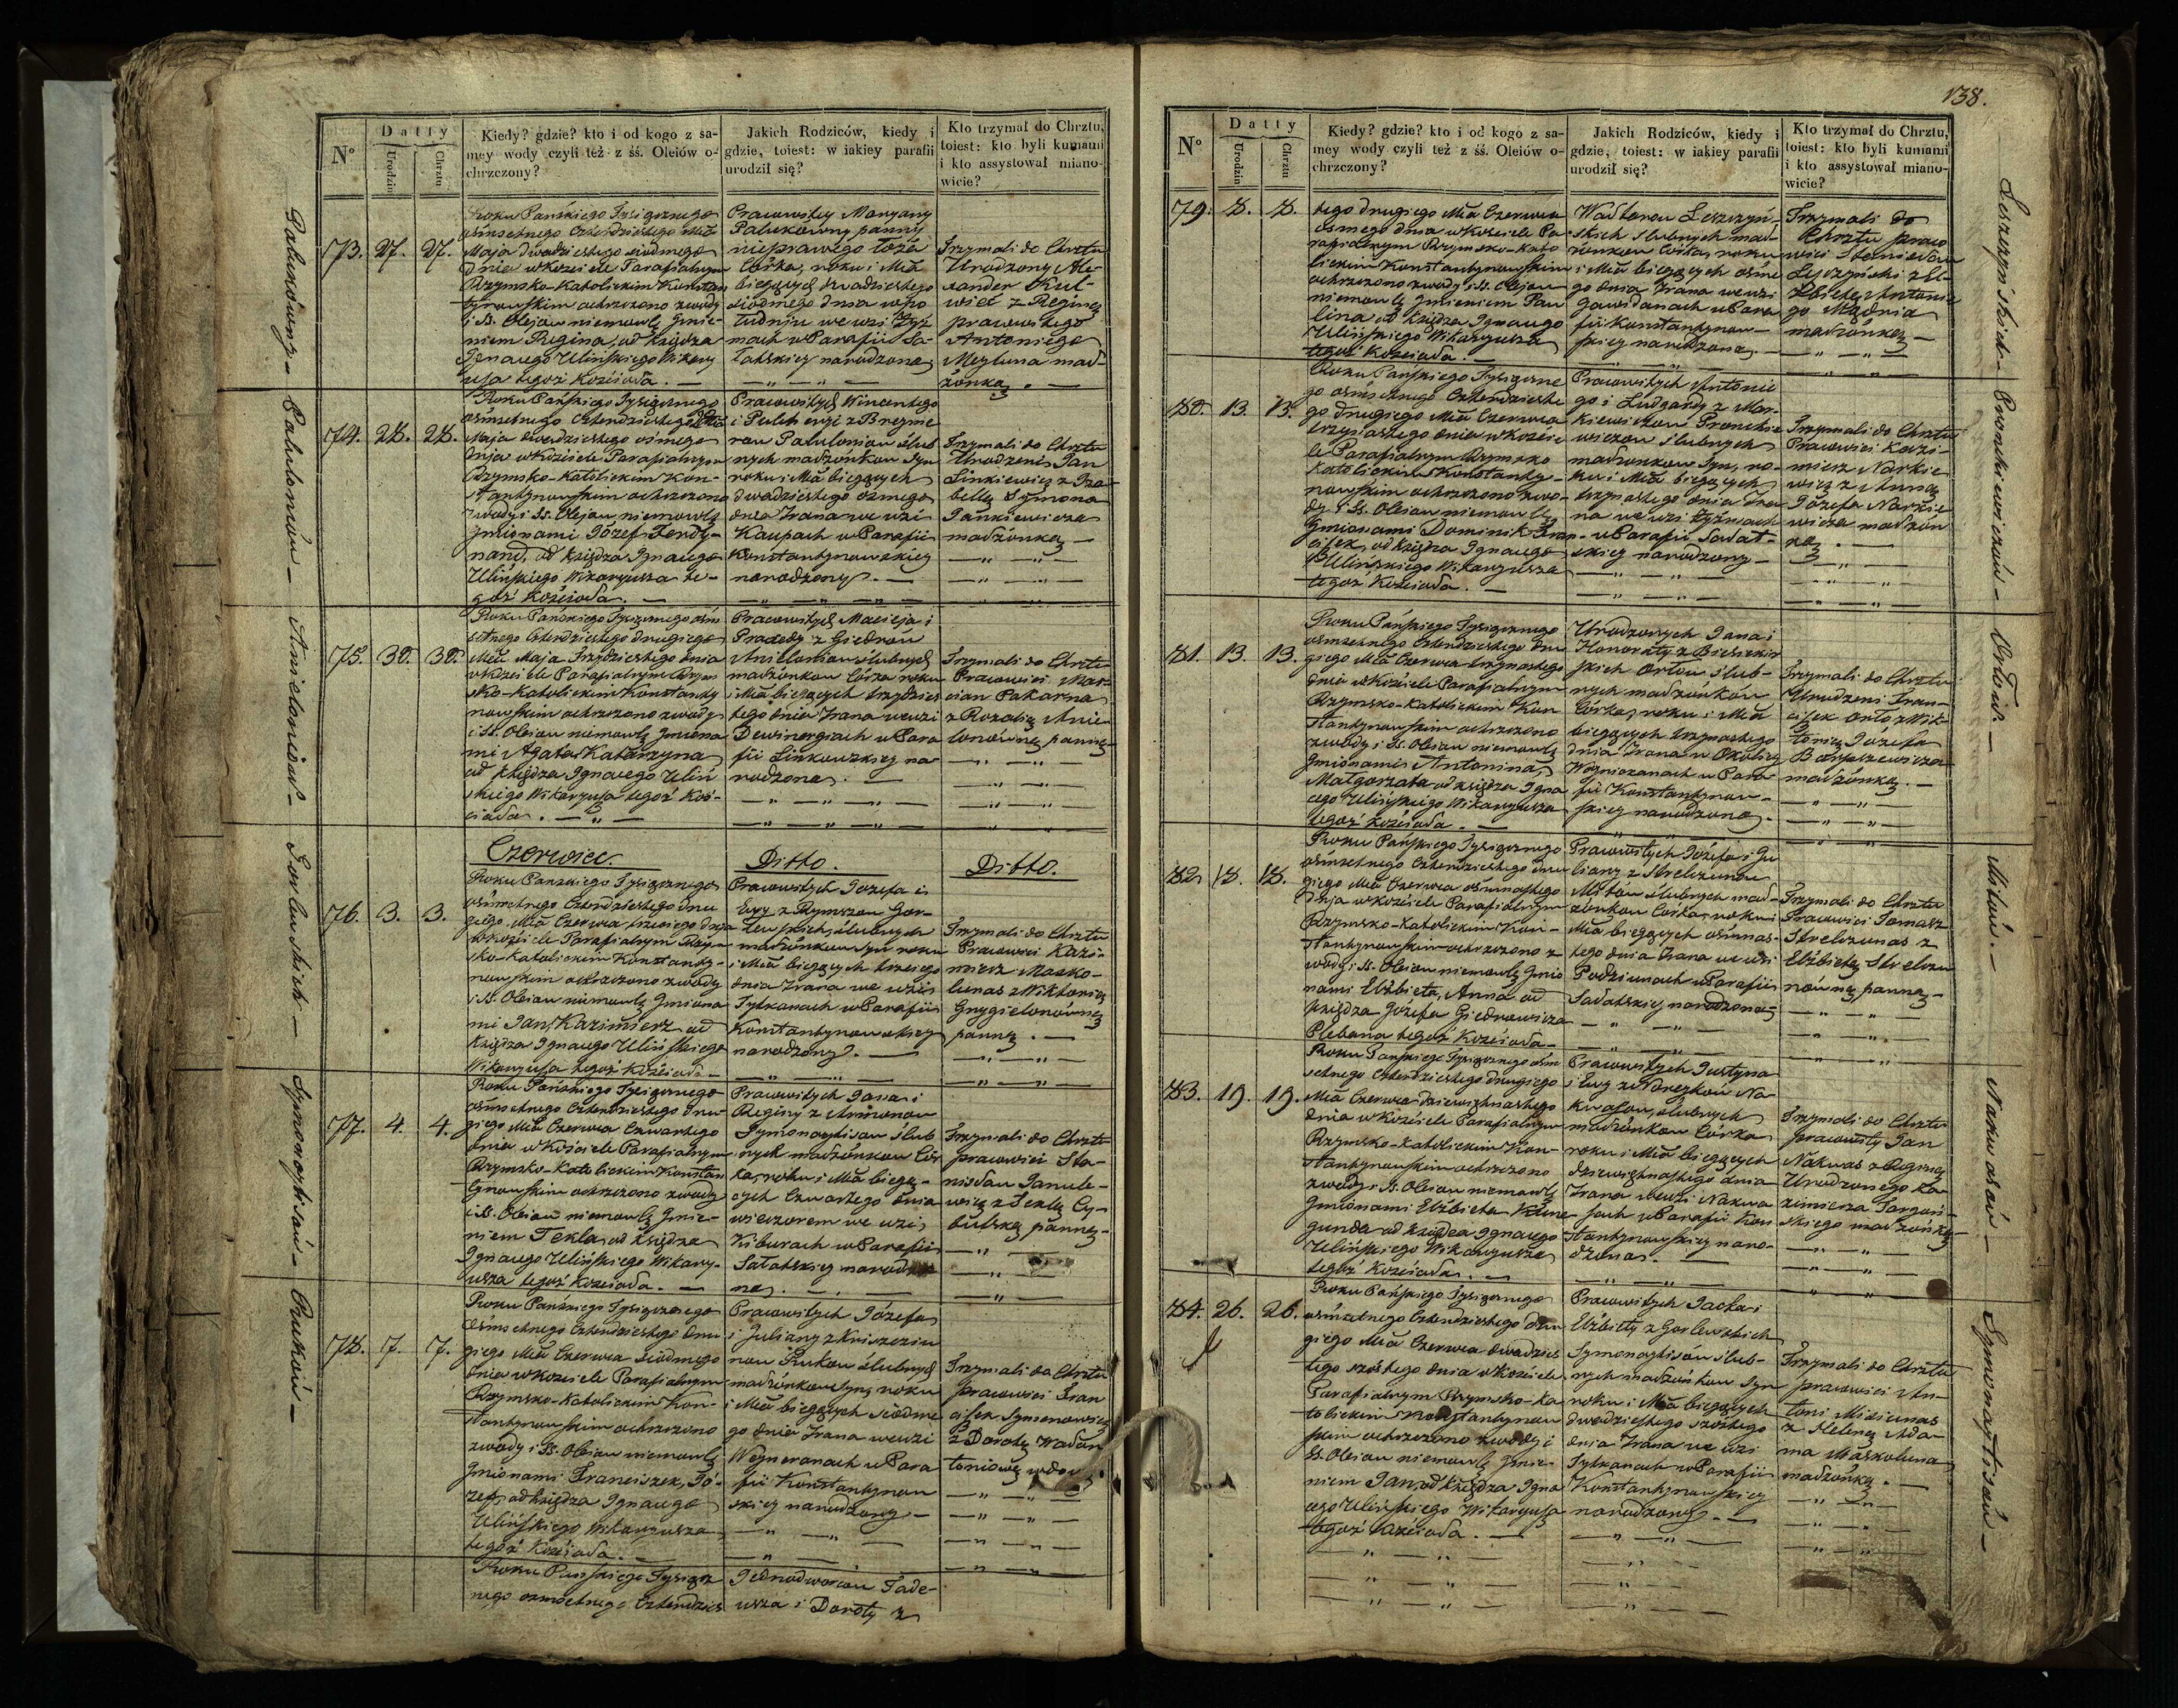 138.
N°
Datty
Urodzin
Chrztu
Kiedy? gdzie? kto i od kogo z sa-
mey wody czyli też z śś. Oleiów o-
chrzczony?
Jakich Rodziców, kiedy i
gdzie, toiest: w iakiey parafii
urodził się?
Kto trzymał do Chrztu,
toiest: kto byli kumami
i kto assystował miano-
wicie?
73. 27. 27.
Roku Pańskiego Tysiącznego
ośmsetnego Czterdziestego
Maja dwadziestego siódmego
dnia w Kościele Parafialnym
Rzymsko-Katolickim Konstan
tynowskim ochrzczono z wody
i SS. Olejow niemowlę Imie-
niem Regina, od Księdza
Ignacego Ulińskiego Wikary
usza tegoż Kościoła. —
Pracowitey Maryany
panny
nieprawego łoża
Córka, roku i Mca
bieżących dwadziestego
siódmego dnia w po
łudniu we wsi
w Parafii Sa-
łatskiey narodzona
Trzymali do Chrztu
Urodzony Ale-
xander
z Reginą
pracowitego
Antoniego
mał-
żonką. —
74. 28. 28.
Roku Pańskiego Tysiącznego
ośmsetnego Czterdziestego
Maja dwadziestego osmego
dnia w Kościele Parafialnym
Rzymsko-Katolickim Kon-
stantynowskim ochrzczono
z wody i SS. Olejow niemowlę
Imionami Józef Ferdy-
nand, od Księdza Ignacego
Ulińskiego Wikaryusza te-
goż Kościoła. —
Pracowitych Wincentego
i
ślub
nych małżonkow Syn
roku i Mca bieżących
dwadziestego osmego
dnia zrana we wsi
Kaupach w Parafii
Konstantynowskiey
narodzony. —
Trzymali do Chrztu
Urodzeni Jan
Linkiewicz z Iza-
bellą Symona
Jankiewicza
małżonką —
75. 30. 30.
Roku Pańskiego Tysiącznego ośm
setnego Czterdziestego drugiego
Mca Maja Trzydziestego dnia
w Kościele Parafialnym Rzym
sko-Katolickim Konstanty
nowskim ochrzczono z wody
i SS. Olejow niemowlę Imiona
mi Agata Katarzyna
od Księdza Ignacego Uliń
skiego Wikaryusza tegoż Koś-
cioła. —
Pracowitych Macieja i
z Giedrów
ślubnych
małżonkow Córka roku
i Mca bieżących trzydzies
tego dnia zrana we wsi
w Para
fii Linkowskiey na
rodzona. —
Trzymali do Chrztu
Pracowici Mar-
cian
z Rozalią Anie
lonówną panną
Czerwiec.
Ditto.
Ditto.
76. 3. 3.
Roku Pańskiego Tysiącznego
ośmsetnego Czterdziestego dru
giego Mca Czerwca trzeciego dnia
w Kościele Parafialnym Rzym-
sko-Katolickim Konstanty-
nowskim ochrzczono z wody
i SS. Olejow niemowlę Imiona
mi Jan, Kazimierz od
Księdza Ignacego Ulińskiego
Wikaryusza tegoż Kościoła —
Pracowitych Jozefa i
Ewy z Rymszow Gor-
lewskich, ślubnych
małżonkow syn roku
i Mca bieżących trzeciego
dnia zrana we wsi
Tytkanach w Parafii
Konstantynowskiey
narodzony. —
Trzymali do Chrztu
Pracowici Kazi-
mierz Masko-
lunas z Wiktorią
Grygielonowną
panną. —
77. 4. 4.
Roku Pańskiego Tysiącznego
ośmsetnego Czterdziestego dru-
giego Mca Czerwca Czwartego
dnia w Kościele Parafialnym
Rzymsko-Katolickim Konstan
tynowskim ochrzczono z wody
i SS. Olejow niemowlę Imie-
niem Tekla, od Księdza
Ignacego Ulińskiego Wikary-
usza tegoż Kościoła. —
Pracowitych Jana i
Reginy z
Symonaytisow ślub
nych małżonkow Cór
ka, roku i Mca bieżą-
cych Czwartego dnia
wieczorem we wsi
Kiburach w Parafii
Sałatskiey narodzo
na. —
Trzymali do Chrztu
pracowici Sta-
nisław Janule-
wicz z Teklą Cy-
bulską panną —
78. 7. 7.
Roku Pańskiego Tysiącznego
Ośmsetnego Czterdziestego dru
giego Mca Czerwca siódmego
dnia w Kościele Parafialnym
Rzymsko-Katolickim Kon-
stantynowskim ochrzczono
z wody i SS. Olejow niemowlę
Imionami Franciszek, Jó-
zef, od Księdza Ignacego
Ulińskiego Wikaryusza
tegoż Kościoła. —
Pracowitych Józefa
i Julianny z
ślubnych
małżonkow Syn, roku
i Mca bieżących siódme
go dnia zrana we wsi
w Para
fii Konstantynow
skiey narodzony —
Trzymali do Chrztu
pracowici Fran
ciszek Symonowicz
z Dorotą
wdową
Roku Pańskiego Tysiącz
nego ośmsetnego Czterdzies
Jednodworcow Tade-
usza i Doroty z
Symonaytisów —
N°
Datty
Urodzin
Chrztu
Kiedy? gdzie? kto i od kogo z sa-
mey wody czyli też z śś. Oleiów o-
chrzczony?
Jakich Rodziców, kiedy i
gdzie, toiest: w iakiey parafii
urodził się?
Kto trzymał do Chrztu,
toiest: kto byli kumami
i kto assystował miano-
wicie?
79. 8. 8.
tego drugiego Mca Czerwca
ósmego dnia w Kościele Pa-
rafialnym Rzymsko-Kato
lickim Konstantynowskim
ochrzczono z wody i SS. Olejow
niemowlę Imieniem Pau
lina, od Księdza Ignacego
Ulińskiego Wikaryusza
tegoż Kościoła. —
Leszczyń-
skich ślubnych mał-
żonkow Córka, roku
i Mca bieżących ósme
go dnia zrana we wsi
w Para
fii Konstantynow-
skiey narodzona. —
Trzymali do
Chrztu praco
wici Stanisław
z El-
żbietą Antonie
go
małżonką —
80. 13. 13.
Roku Pańskiego Tysiączne
go ośmsetnego Czterdzieste
go drugiego Mca Czerwca
trzynastego dnia w Kościo
le Parafialnym Rzymsko
Katolickim Konstanty-
nowskim ochrzczono z wo-
dy i SS. Olejow niemowlę
Imionami Dominik Fran-
ciszek, od Księdza Ignacego
Ulińskiego Wikaryusza
tegoż Kościoła. —
Pracowitych Antonie
go i Ludgardy z Mar-
kiewiczow
ślubnych
małżonkow Syn, ro-
ku i Mca bieżących
trzynastego dnia zra
na we wsi
w Parafii Sałat-
skiey narodzony —
Trzymali do Chrztu
Pracowici Kazi-
mierz Narkie
wicz z Anną
Józefa Narkie
wicza małżon
ką. —
81. 13. 13.
Roku Pańskiego Tysiącznego
ośmsetnego Czterdziestego dru
giego Mca Czerwca trzynastego
dnia w Kościele Parafialnym
Rzymsko-Katolickim Kon
stantynowskim ochrzczono
z wody i SS. Olejow niemowlę
Imionami Antonina,
Małgorzata od Księdza Igna
cego Ulińskiego Wikaryusza
tegoż Kościoła. —
Urodzonych Jana i
Honoraty z
skich Orłow ślub-
nych małżonków
Córka, roku i Mca
bieżących trzynastego
dnia zrana w Okolicy
w Para
fii Konstantynow-
skiey narodzona. —
Trzymali do Chrztu
Urodzeni Fran-
ciszek Orło z Wik-
torią Józefa
małżonką. —
82. 18. 18.
Roku Pańskiego Tysiącznego
ośmsetnego Czterdziestego dru
giego Mca Czerwca ośmnastego
dnia w Kościele Parafialnym
Rzymsko-Katolickim Kon-
stantynowskim ochrzczono z
wody i SS. Olejow niemowlę Imio
nami Elżbieta, Anna od
Księdza Józefa Giedrowicza
Plebana tegoż Kościoła —
Pracowitych Józefa i Ju
lianny z Strelczunow
ślubnych mał-
żonkow Córka, roku i
Mca bieżących ośmnas-
tego dnia zrana we wsi
w Parafii
Sałatskiey narodzona —
Trzymali do Chrztu
Pracowici Tomasz
Strelczunas z
Elżbietą Strelczu
nówną panną —
83. 19. 19.
Roku Pańskiego Tysiącznego ośm
setnego Czterdziestego drugiego
Mca Czerwca dziewiętnastego
dnia w Kościele Parafialnym
Rzymsko-Katolickim Kon-
stantynowskim ochrzczono
z wody i SS. Olejow niemowlę
Imionami Elżbieta Kune-
gunda od Księdza Ignacego
Ulińskiego Wikaryusza
tegoż Kościoła. —
Pracowitych Justyna
i Ewy z Na-
kwasow, ślubnych
małżonkow Córka
roku i Mca bieżących
dziewiętnastego dnia
zrana we wsi Nakwa
sach w Parafii Kon
stantynowskiey naro-
dzona. —
Trzymali do Chrztu
pracowity Jan
Nakwas z Reginą
Urodzonego Ka-
zimierza
skiego małżonką
84. 26. 26.
Roku Pańskiego Tysiącznego
ośmsetnego Czterdziestego dru
giego Mca Czerwca dwadzies
tego szóstego dnia w Kościele
Parafialnym Rzymsko-Ka
tolickim Konstantynow
skim ochrzczono z wody i
SS. Olejow niemowlę Imie-
niem Jan, od Księdza Igna
cego Ulińskiego Wikaryusza
tegoż Kościoła. —
Pracowitych Jacka i
Elżbiety z Gorlewskich
Symonaytisów ślub-
nych małżonkow Syn
roku i Mca bieżących
dwadziestego szóstego
dnia zrana we wsi
Tytkanach w Parafii
Konstantynowskiey
narodzony. —
Trzymali do Chrztu
pracowici An-
toni Misiunas
z Heleną Ada-
ma Maskoluna
małżonką. —
Leszczyńskich —
Nakwasów —
Symonaytisów —